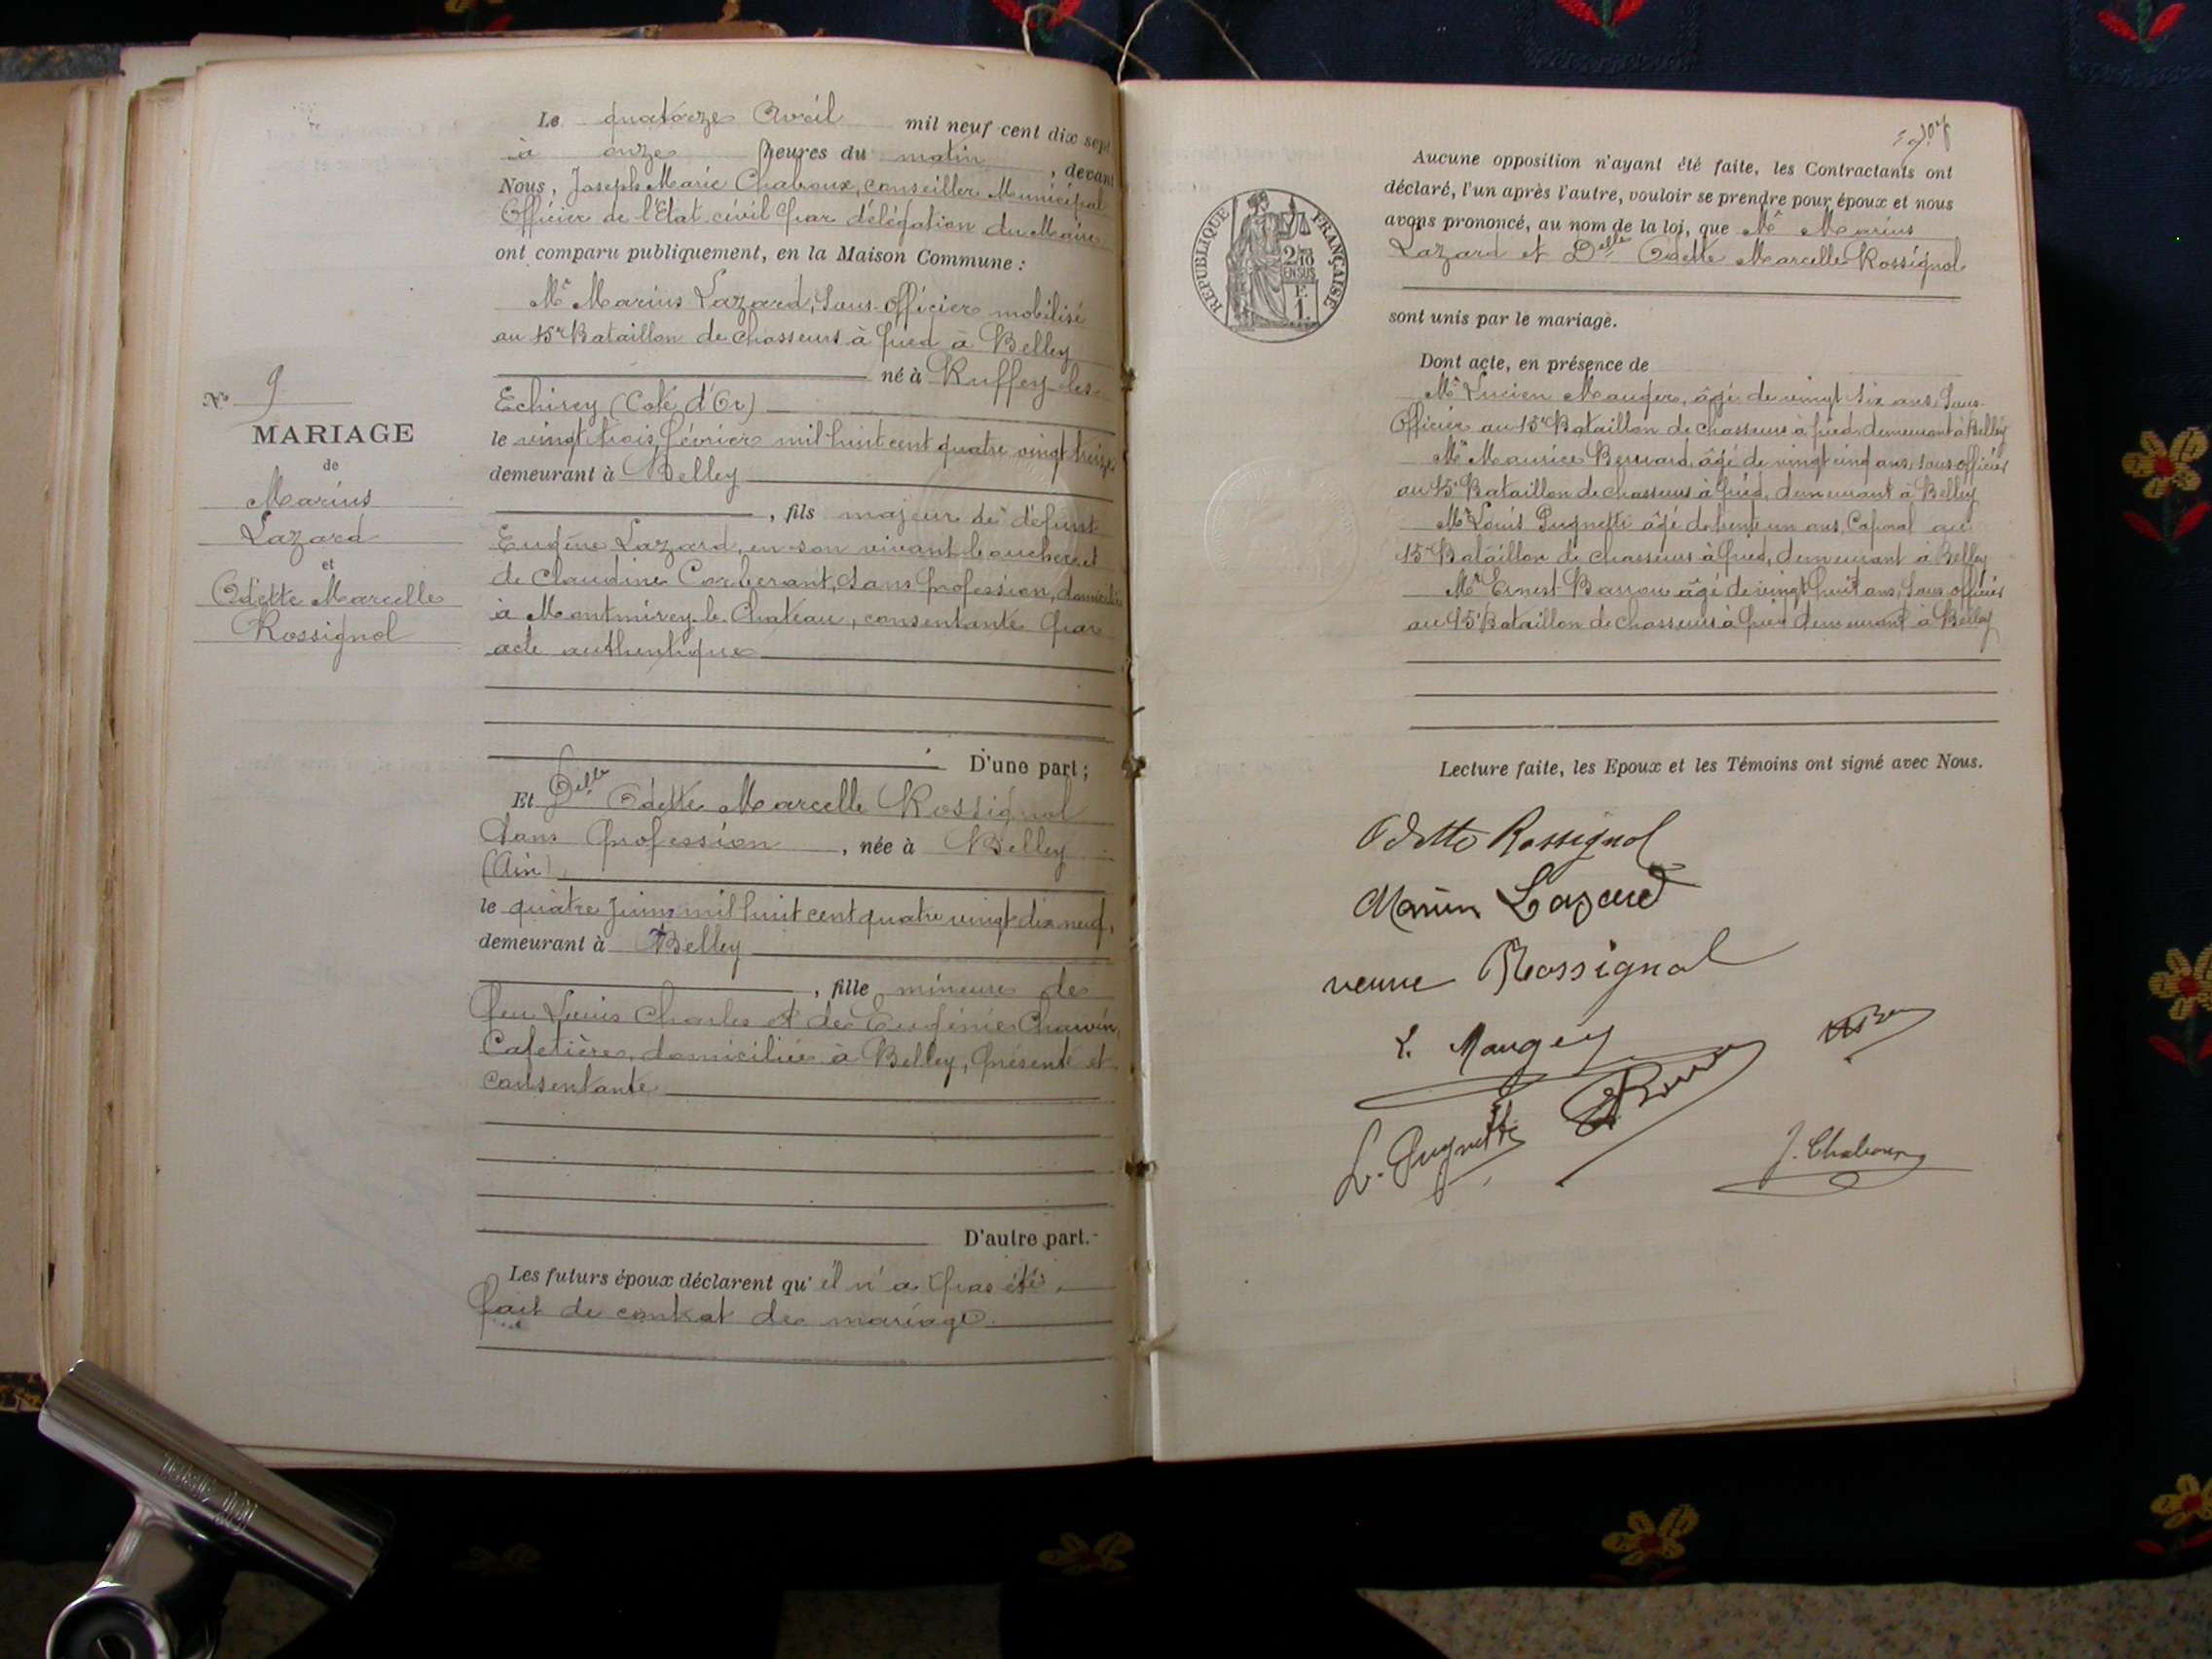 Le quatorze Avril mil neuf cent dix sept
à onze heures du matin, devant
Nous, Joseph Marie Chaboux, conseiller Municipal
Officier de l'Etat civil par délégation du Maire
ont comparu publiquement, en la Maison Commune :
Mr Marius Lazard, Sous-Officier mobilisé
au 15e Bataillon de chasseurs à pied à Belley
né à Ruffey-les-
Echirey (Coté d'Or)
le vingt trois février mil huit cent quatre vingt treize
demeurant à Belley
, fils majeur de défunt
Eugène Lazard, en son vivant boucher et
de Claudine Corberant, sans profession, domiciliée
à Montmirey-le-Chateau, consentante par
acte authentique
D'une part ;
Et Delle Odette Marcelle Rossignol
Sans Profession, née à Belley
(Ain)
le quatre Juin mil huit cent quatre vingt dix neuf,
demeurant à Belley
, fille mineure de
feu Louis Charles et de Eugénie Chauvin,
Cafetière, domiciliée à Belley, présente et
consentante
D'autre part.
Les futurs époux déclarent qu'il n'a pas été
fait de contrat de mariage.
No 9
MARIAGE
de
Marius
Lazard
et
Odette Marcelle
Rossignol
Aucune opposition n'ayant été faite, les Contractants ont
déclaré, l'un après l'autre, vouloir se prendre pour époux et nous
avons prononcé, au nom de la loi, que Mr Marius
Lazard et Delle Odette Marcelle Rossignol
sont unis par le mariage.
Dont acte, en présence de
Mr Lucien Maugey, âgé de vingt six ans, Sous-
Officier au 15e Bataillon de chasseurs à pied, demeurant à Belley
Mr Maurice âgé de vingt cinq ans, sous officier
au 15e Bataillon de chasseurs à pied, demeurant à Belley
Mr Louis Pugnetti âgé de trente un ans, Caporal au
15e Bataillon de chasseurs à pied, demeurant à Belley
Mr Ernest âgé de vingt huit ans, Sous officier
au 15e Bataillon de chasseurs à pied demeurant à Belley
Lecture faite, les Epoux et les Témoins ont signé avec Nous.
Odette Rossignol
Marius Lazard
veuve Rossignol
L. Maugey
L. Pugnetti
J. Chaboux
REPUBLIQUE FRANÇAISE
2/10
EN SUS
F.
1.